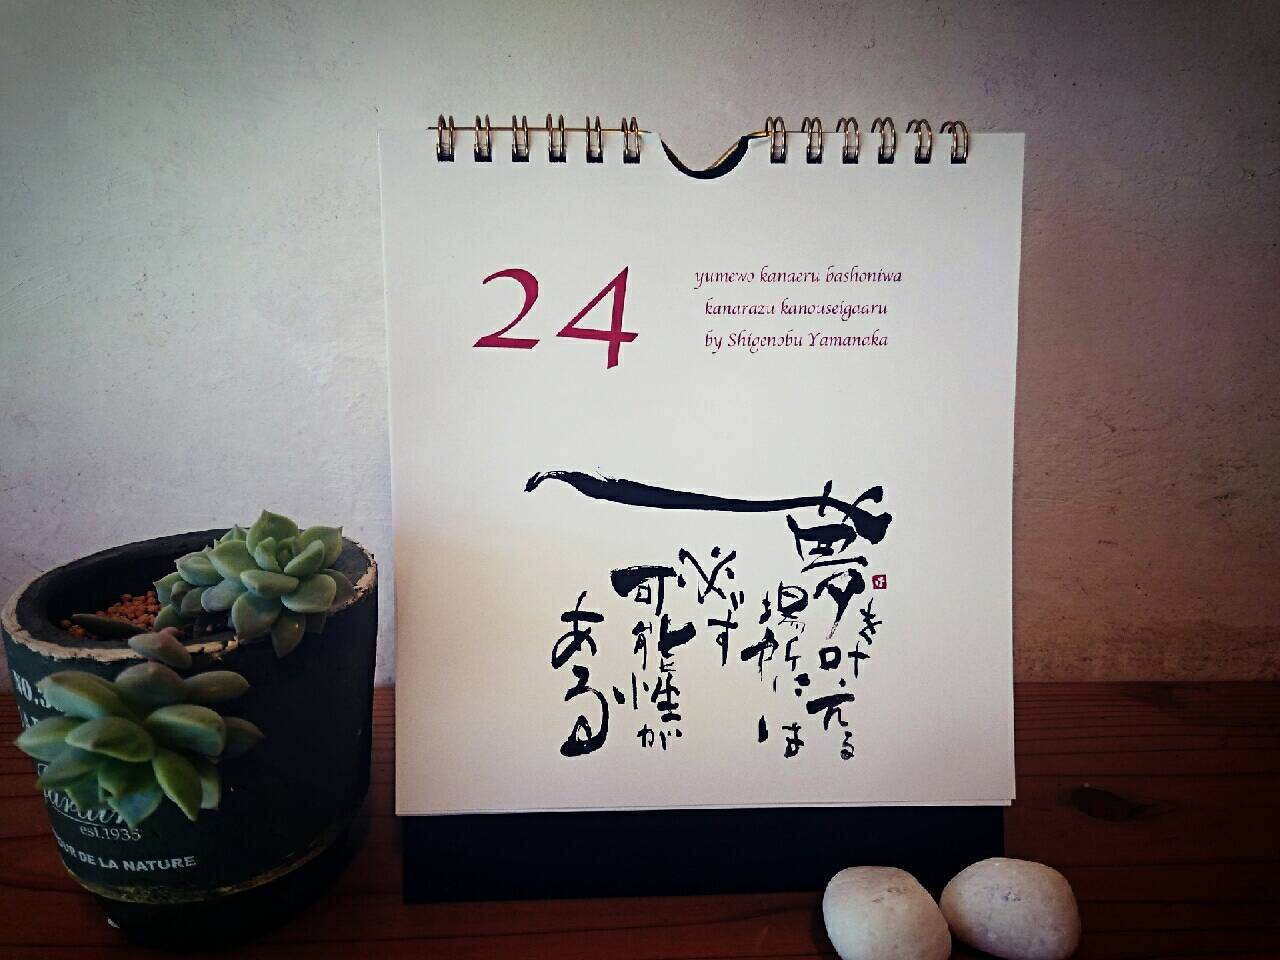 24
yumewo kanaeru bashoniwa
kanarazu kanouseigaaru
by Shigenobu Yamanaka
夢を叶える
場所には
必ず
可能性が
ある
NO.
est.1935
DE LA NATURE